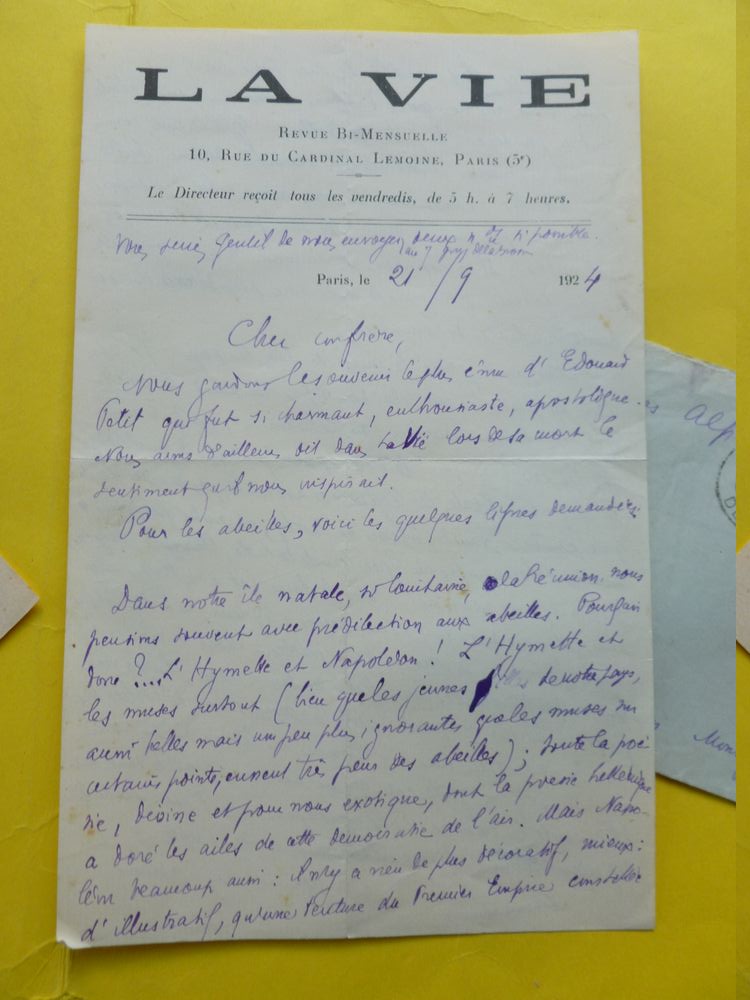 LA VIE
REVUE BI-MENSUELLE
10, RUE DU CARDINAL LEMOINE, PARIS (5e)
Le Directeur reçoit tous les vendredis, de 5 h. à 7 heures.
Vous seriez gentil de nous envoyer deux nos si possible.
au
Paris, le 21/9 1924
Cher confrère,
Nous gardons le souvenir le plus ému d'Edouard
Petit qui fut si charmant, enthousiaste, apostolique.
Nous avons d'ailleurs dit dans La Vie lors de sa mort le
sentiment qu'il nous inspirait.
Pour les abeilles, voici les quelques lignes demandées.
Dans notre île natale, si lointaine, la Réunion, nous
pensions souvent avec prédilection aux abeilles. Pourquoi
donc ?... L'Hymette et Napoléon ! L'Hymette et
les muses surtout (bien que les jeunes filles de notre pays,
aussi belles mais un peu plus ignorantes que les muses sur
certains points, eussent très peur des abeilles) ; toute la poé
sie, divine et pour nous exotique, dont la poésie hellénique
a doré les ailes de cette démocratie de l'air. Mais Napo-
léon beaucoup aussi : il n'y a rien de plus décoratif, mieux :
d'illustratif, qu'une tenture du Premier Empire constellée
as Alp
Mon